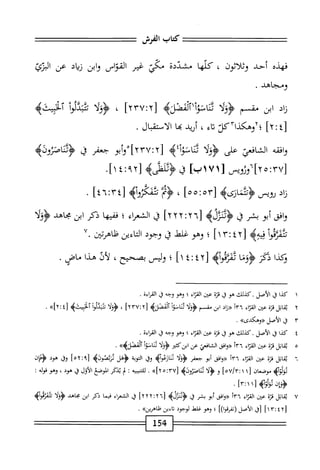 كتاب الفرش
فهذه أحد وثلاثون ، كلّها مشدّدة مكّيّ غير القوّاس وابن زياد عن البزّيّ
ومجاهد .
زاد ابن مقسم ﴿وَلَا تَّنَاسَوُا۟ ٱلْفَضْلَ﴾ [٢٣٧:٢] ، ﴿وَلَا تَّتَبَدَّلُوا۟ ٱلْخَبِيثَ﴾
[٢:٤] ؛ وهكذا كلّ تاء ، أريد بها الاستقبال .
وافقه الشافعيّ على ﴿وَلَا تَّنَاسَوُا۟﴾ [٢٣٧:٢] وأبو جعفر في ﴿تَّنَاصَرُونَ﴾
[٢٥:٣٧] ورُويس [١٧١ب] في ﴿تَّلَظَّى﴾ [١٤:٩٢].
زاد رويس ﴿تَّتَمَارَى﴾ [٥٥:٥٣] ، ﴿ثُمَّ تَّتَفَكَّرُوا۟﴾ [٤٦:٣٤] .
وافق أبو بشر في ﴿تَّنَزَّلُ﴾ [٢٢٢:٢٦] في الشعراء ؛ ففيها ذكر ابن مجاهد ﴿وَلَا
تَتَفَرَّقُوا۟ فِيهِ﴾ [١٣:٤٢] ؛ وهو غلط في وجود التاءين ظاهرتين .٧
وكذا ذَكَرَ ﴿وَمَا تَفَرَّقُوا۟﴾ [١٤:٤٢] ؛ وليس بصحيح ، لأنّ هذا ماضٍ .
١ كذا في الأصل . كذلك هو في قرّة عين القرّاء ؛ وهو وجه في القراءة .
٢ يُقابَل قرّة عين القرّاء ٣٦أ «زاد ابن مقسم ﴿وَلَا تَّنَاسَوُا۟ ٱلْفَضْلَ﴾ [٢٣٧:٢] ، ﴿وَلَا تَّتَبَدَّلُوا۟ ٱلْخَبِيثَ﴾ [٢:٤]» .
٣ في الأصل «وهكذى» .
٤ كذا في الأصل . كذلك هو في قرّة عين القرّاء ؛ وهو وجه في القراءة .
٥ يُقابَل قرّة عين القرّاء ٣٦أ «وافق الشافعيّ عن ابن كثير ﴿وَلَا تَّنَاسَوُا۟ ٱلْفَضْلَ﴾» .
٦ يُقابَل قرّة عين القرّاء ٣٦أ «وافق أبو جعفر ﴿وَلَا تَّنَازَعُوا۟﴾ وفي التوبة ﴿هَلْ تَّرَبَّصُونَ﴾ [٥٢:٩] وفي هود ﴿فَإِن
تَّوَلَّوْا۟﴾ موضعان [٥٧/٣:١١] و ﴿لَا تَّنَاصَرُونَ﴾ [٢٥:٣٧]» . للتنبيه : لم يُذكر الموضع الأوّل في هود ، وهو قوله :
﴿وَإِن تَّوَلَّوْا۟﴾ [٣:١١] .
٧ يُقابَل قرّة عين القرّاء ٣٦أ «وافق أبو بشر في ﴿تَّنَزَّلُ﴾ [٢٢٢:٢٦] في الشعراء فيما ذكر ابن مجاهد ﴿وَلَا تَتَفَرَّقُوا۟﴾
[١٣:٤٢] [في الأصل (تفرقوا)] ؛ وهو غلط لوجود تاءين ظاهرين» .
154